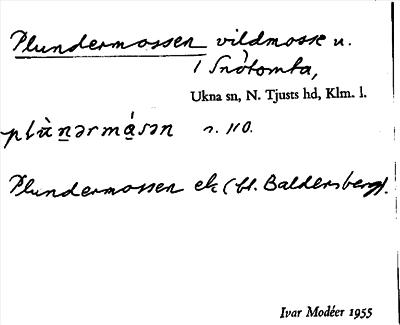 Plundermossen vildmosse u.
i Snôtomta,
Ukna sn, N. Tjusts hd, Klm. l.
plànərmósən s. 110.
Plundermossen ek (bl. Baldersberg).
Ivar Modéer 1955